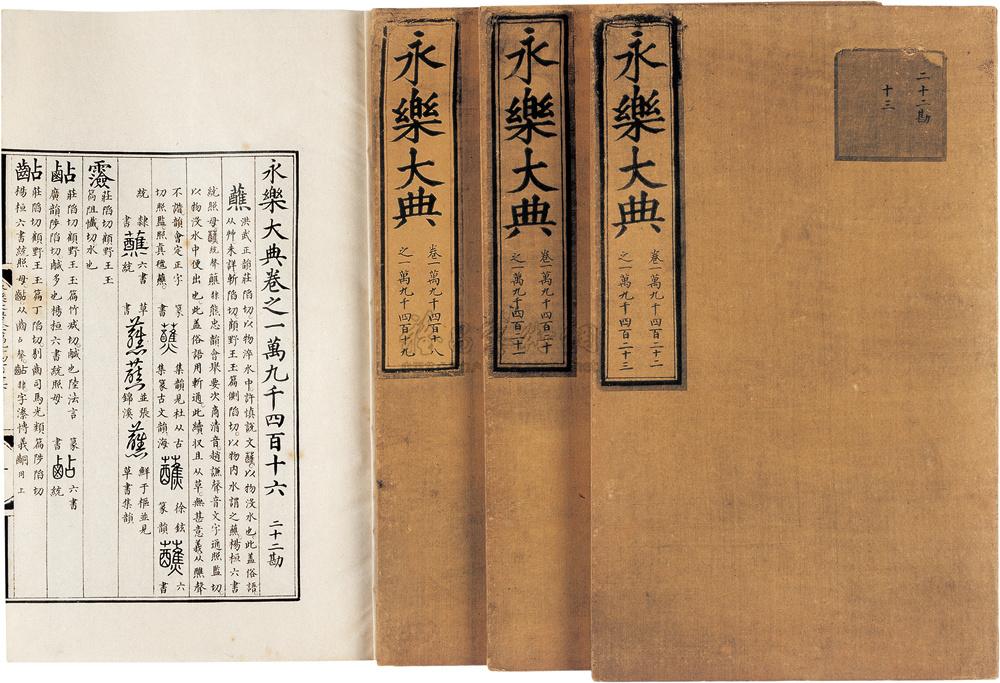 二十二勘
十三
永樂大典
卷一萬九千四百二十二
之一萬九千四百二十三
永樂大典
卷一萬九千四百二十
之一萬九千四百二十一
永樂大典
卷一萬九千四百十八
之一萬九千四百十九
永樂大典卷之一萬九千四百十六 二十二勘
蘸 洪武正韻莊陷切以物淬水中許慎說文醮以物沒水也此蓋俗語
从艸未詳斬陷切顧野王玉篇側陷切以物內水謂之蘸楊桓六書
統照母 聲蘸隸熊忠韻會舉要次商清音趙謙聲音文字通照監切
以物沒水中使出也此蓋俗語用斬通此續収且从草無甚意義从醮聲
不諧韻會定正字 篆 蘸 集韻見杜从古 蘸 徐鉉 蘸 六
切照監照真氊蘸 書 集篆古文韻海 篆韻 書
統 隸 蘸 六書 草 蘸蘸 並張 蘸 鮮于樞並見
書 統 書 錦溪 草書集韻
莊陷切顧野王玉
篇阻懺切水也
莊陷切顧野王玉篇竹咸切鹹也陸法言 篆 六書
廣韻陟陷切鹹多也楊桓六書統照母 書 統
莊陷切顧野王玉篇丁陷切 司馬光類篇陟陷切
楊桓六書統照母 从齒占聲 隸字溱博義 同上